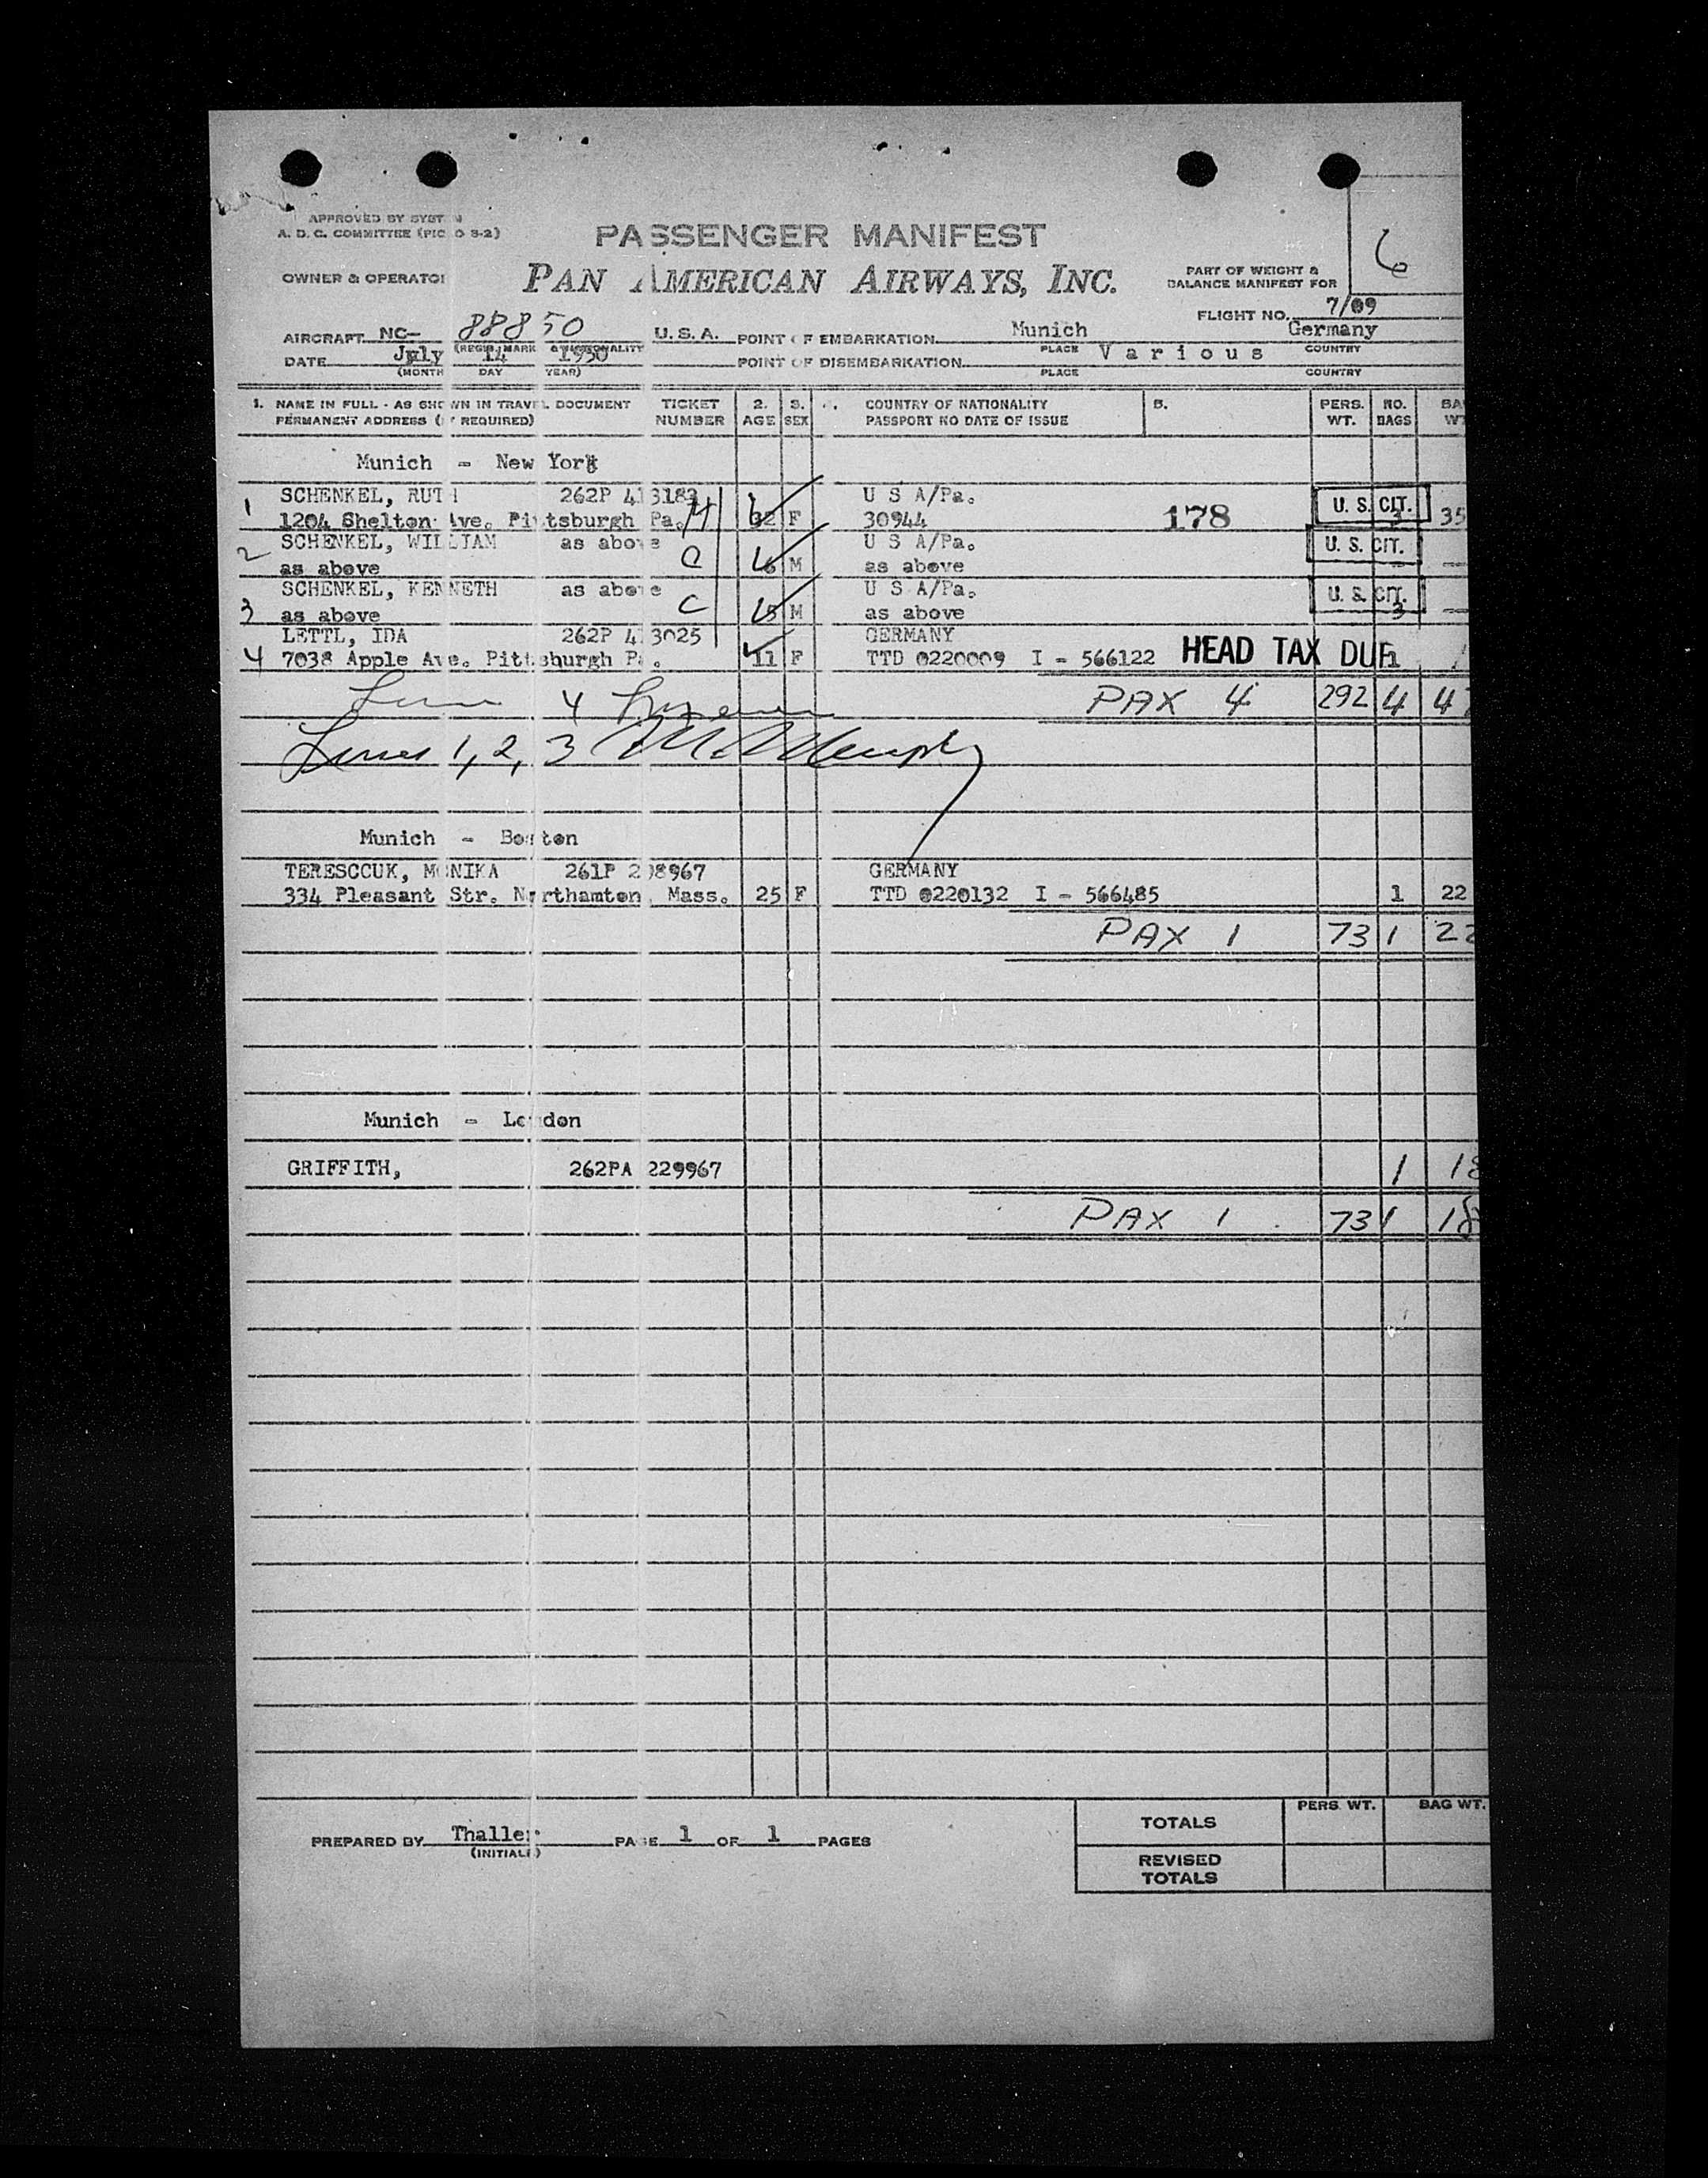 6
APPROVED BY SYST N
A. D. C. COMMITTEE (PIC O S-2)
PASSENGER MANIFEST
OWNER & OPERATOR
PAN AMERICAN AIRWAYS, INC.
PART OF WEIGHT &
BALANCE MANIFEST FOR
FLIGHT NO. 7/09
AIRCRAFT NC- 88850 U.S.A. POINT OF EMBARKATION Munich Germany
(REGIS. MARK & NATIONALITY PLACE COUNTRY
DATE July 14 1950 POINT OF DISEMBARKATION Various
(MONTH DAY YEAR) PLACE COUNTRY
1. NAME IN FULL - AS SHOWN IN TRAVEL DOCUMENT TICKET 2. 3. COUNTRY OF NATIONALITY 5. PERS. NO. BA
PERMANENT ADDRESS (IF REQUIRED) NUMBER AGE SEX PASSPORT NO DATE OF ISSUE WT. BAGS WT
Munich - New York
SCHENKEL, RUTH 262P 413183 U S A/Pa. U. S. CIT.
1 1204 Shelton Ave. Pittsburgh Pa. 32 F 30944 178 3 35
SCHENKEL, WILLIAM as above C U S A/Pa. U. S. CIT.
2 as above 6 M as above
SCHENKEL, KENNETH as above C U S A/Pa. U. S. CIT.
3 as above M as above
LETTL, IDA 262P 413025 GERMANY
4 7038 Apple Ave. Pittsburgh Pa. 11 F TTD 0220009 I - 566122 HEAD TAX DUE 1
4 PAX 4 292 4 47
Lines 1, 2, 3
Munich - Boston
TERESCCUK, MONIKA 261P 298967 GERMANY
334 Pleasant Str. Northamton, Mass. 25 F TTD 0220132 I - 566485 1 22
PAX 1 73 1 22
Munich - London
GRIFFITH, 262PA 229967 1 18
PAX 1 73 1 18
PERS. WT. BAG WT.
TOTALS
PREPARED BY Thaller PAGE 1 OF 1 PAGES
(INITIALS)
REVISED
TOTALS